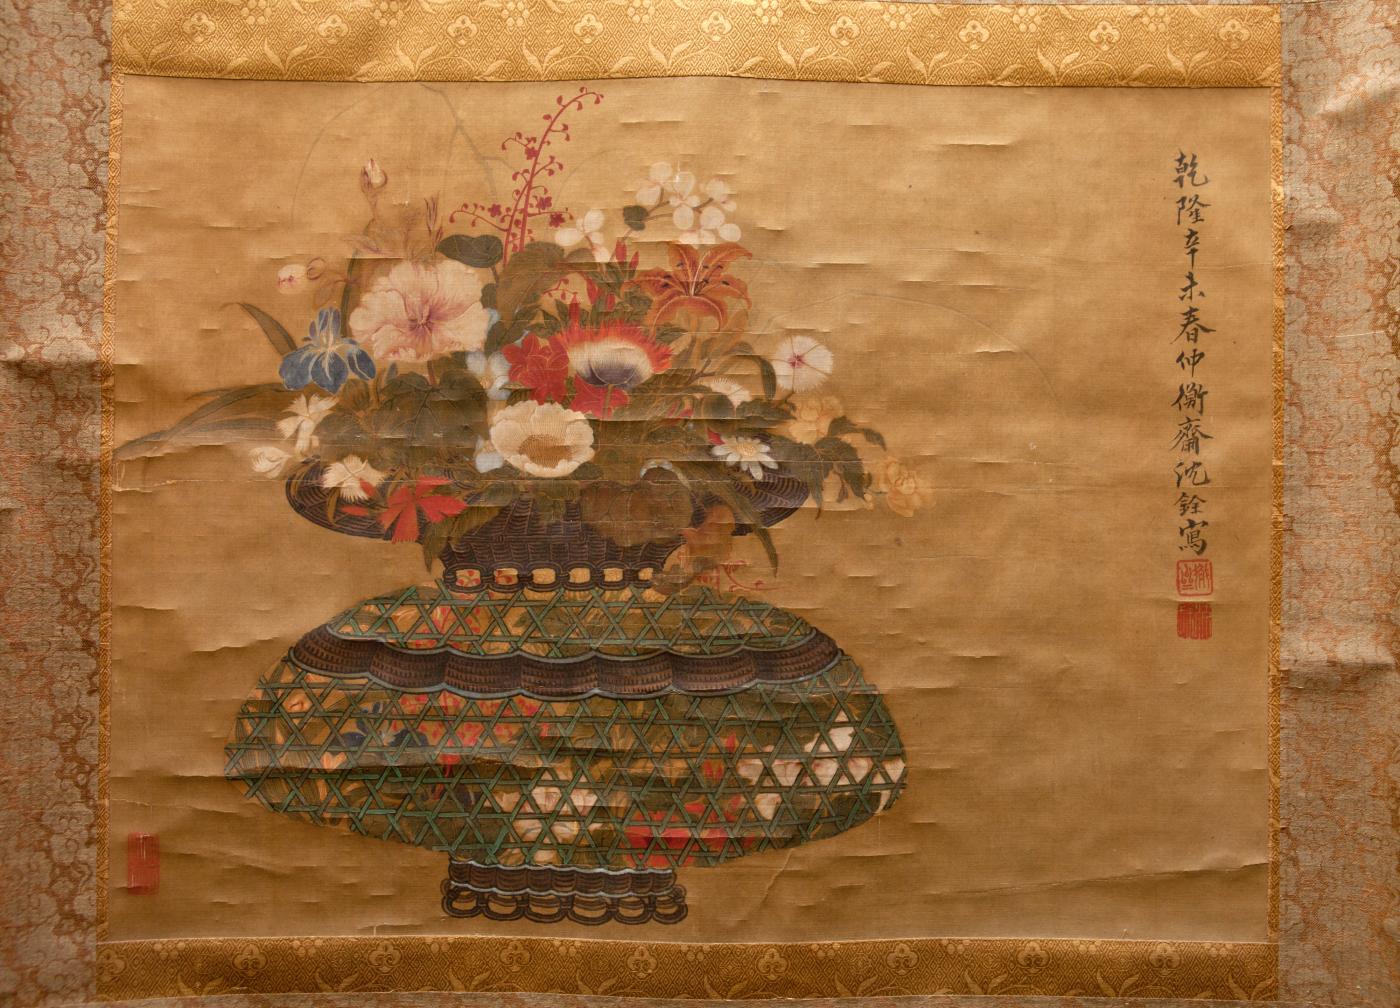 乾隆辛未春仲衡齋沈銓寫